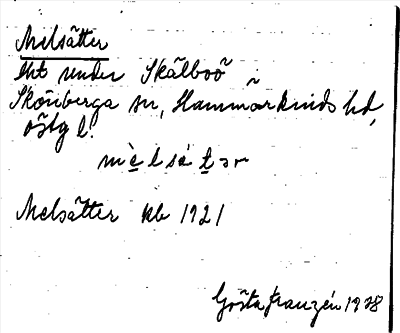 Melsätter
lht under Skälboö
Skönberga sn, Hammarkinds hd,
östg l.
mè̱lsa'ṯər
Melsätter kb 1921
Gösta Franzén 1928